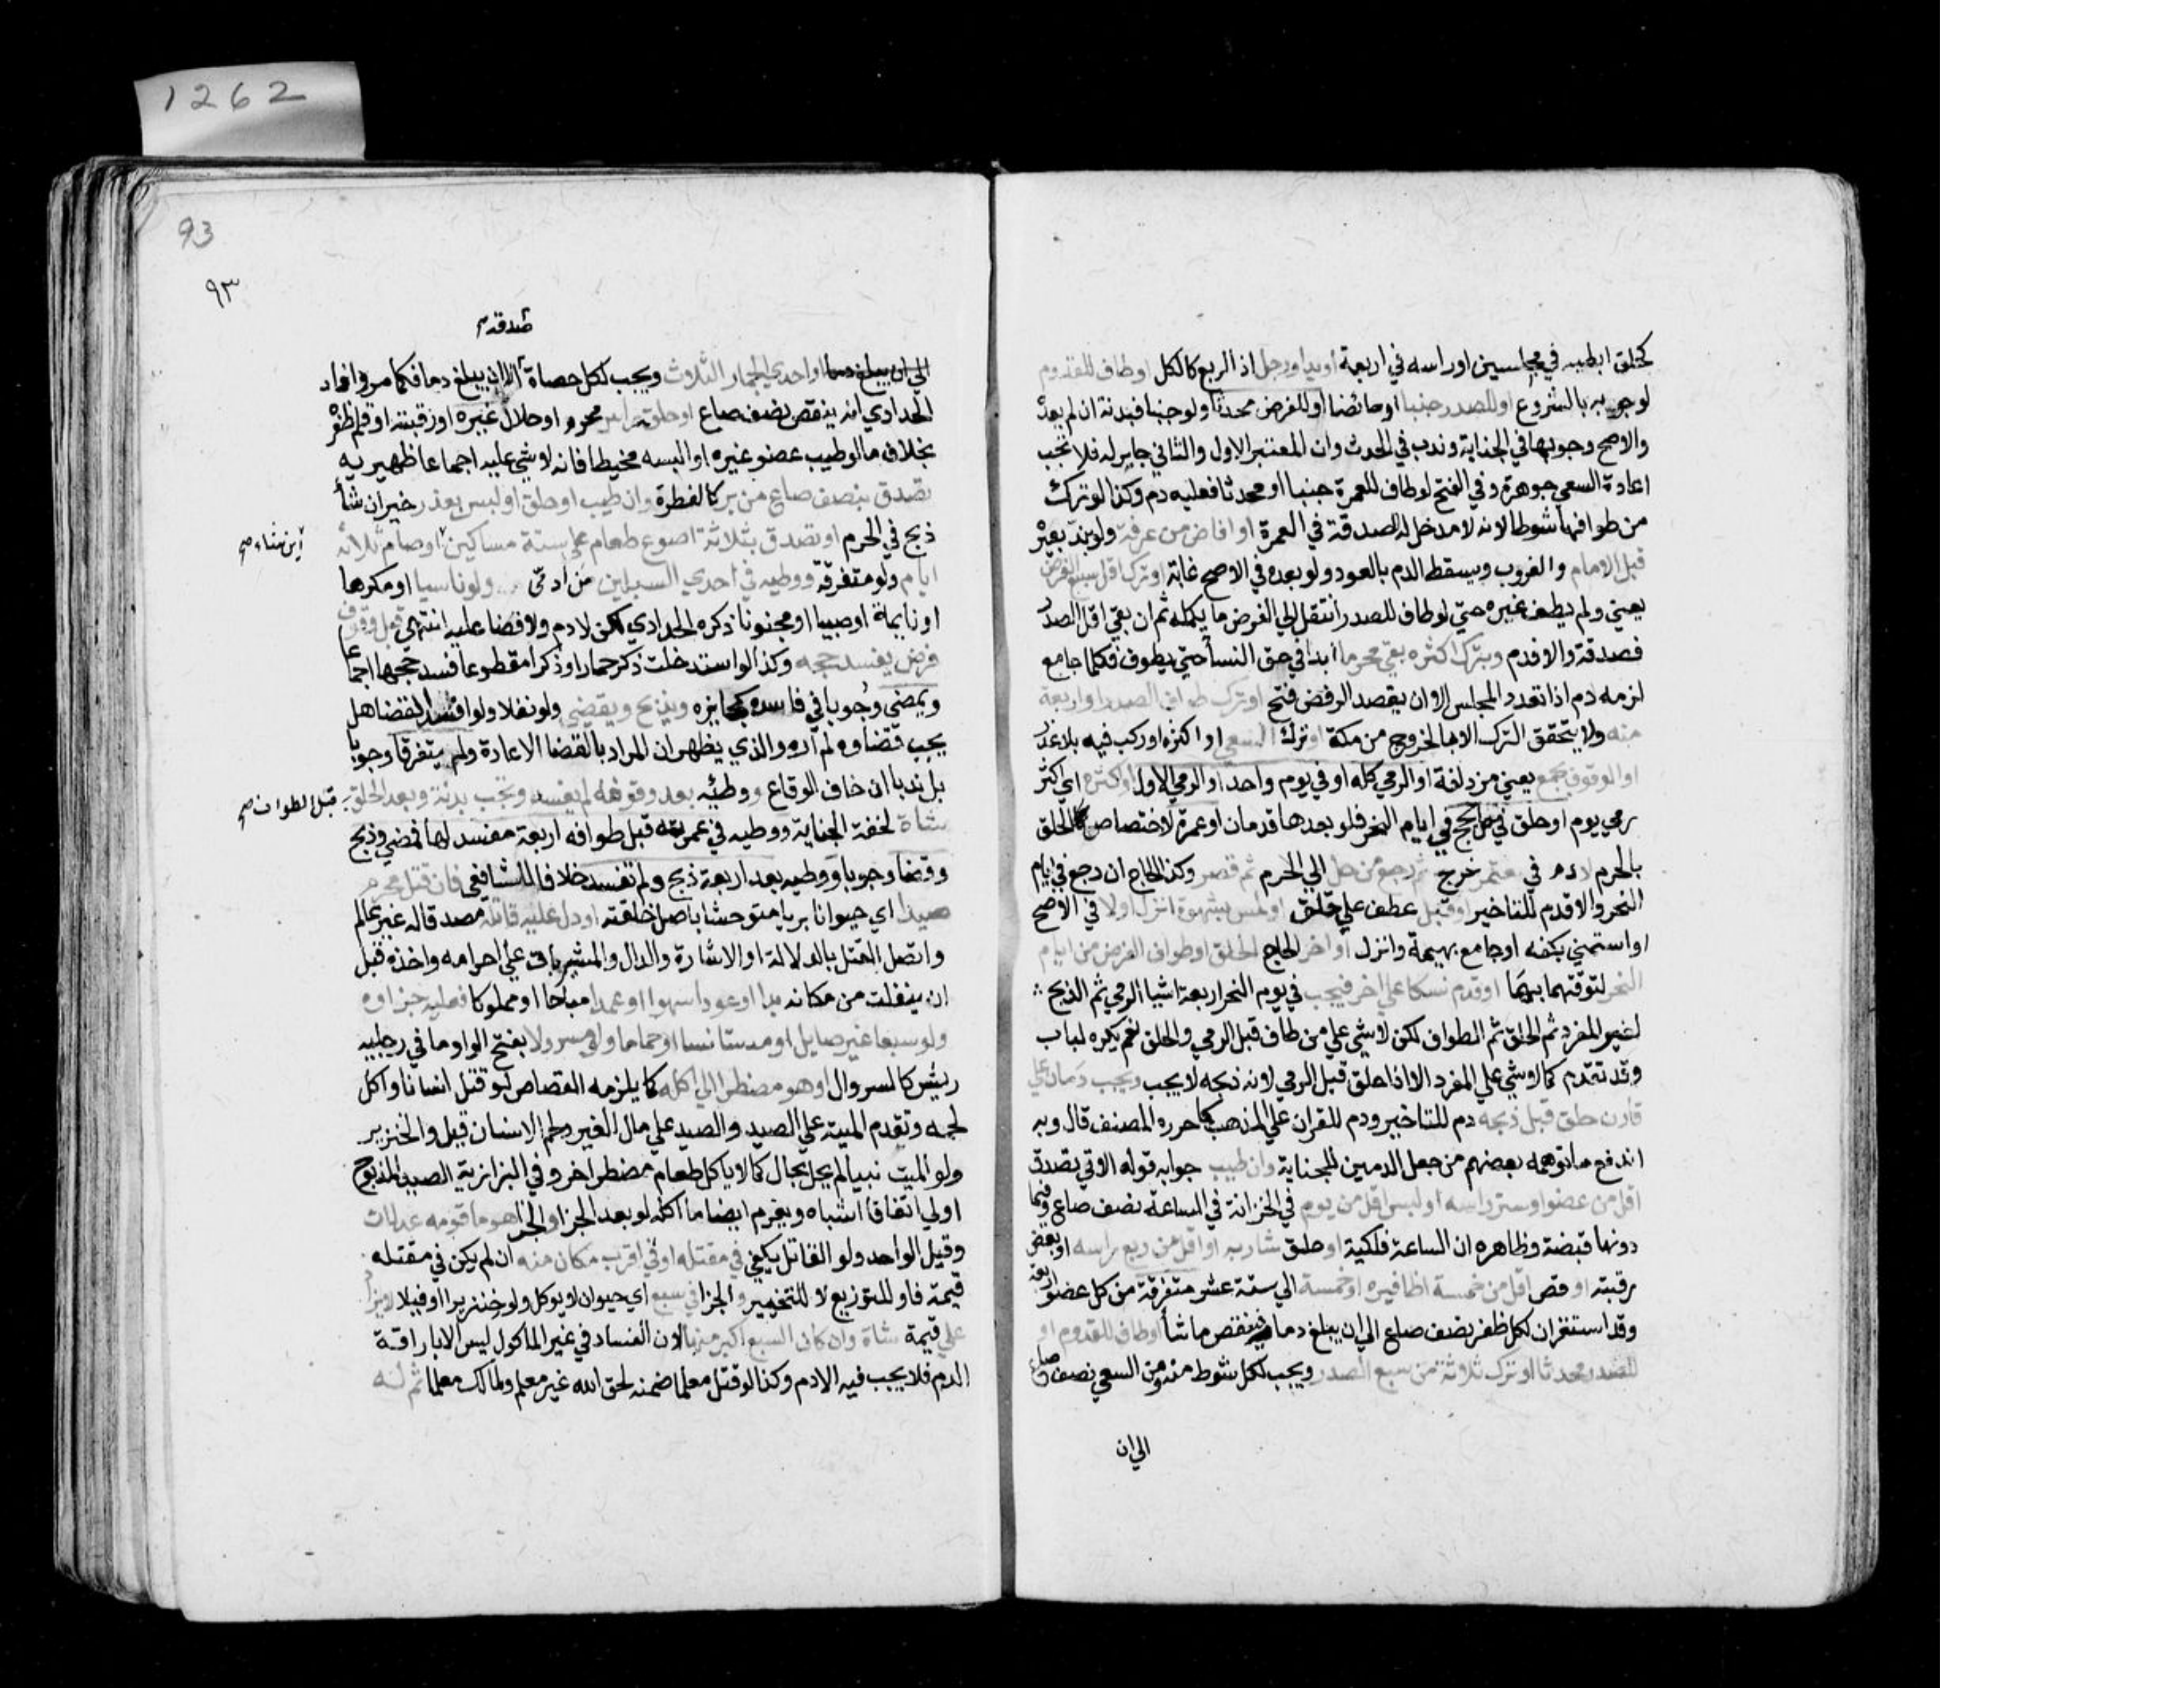 كحلق ابطيه في مجلسين اوراسه في اربعة او يد او رجل اذ الربع كالكل او طاف للقدوم
لوجوبه بالشروع او للصدر جنبا او حائضا او للفرض محدثا ولو جنبا فبدنة ان لم يعده
والاصح وجوبها في الجنابة وندب في الحدث وان المعتبر الاول والثاني جابر له فلا تجب
اعادة السعي جوهرة وفي الفتح لو طاف للعمرة جنبا او محدثا فعليه دم وكذا لو ترك
من طوافها شوطا لانه لا مدخل للصدقة في العمرة او افاض من عرفة ولو بند بعيره
قبل الامام والغروب ويسقط الدم بالعود ولو بعده في الاصح غاية او ترك اقل سبع الفرض
يعني ولم يطف غيره حتي لو طاف للصدر انتقل الي الفرض ما يكمله ثم ان بقي اقل الصدر
فصدقة والا فدم وبترك اكثره بقي محرما ابدا في حق النسأ حتي يطوف فكلما جامع
لزمه دم اذا تعدد المجلس الا ان يقصد الرفض فتح او ترك طواف الصدر او اربعة
منه ولا يتحقق الترك الا بالخروج من مكة او ترك السعي او اكثره او ركب فيه بلا عذر
او الوقوف بجمع يعني مزدلفة او الرمي كله او في يوم واحد او الرمي الاول او اكثره اي اكثر
رمي يوم او حلق في حل بحج في ايام النحر فلو بعدها فدمان او عمرة لاختصاص الحلق
بالحرم لا دم في معتمر خرج ثم رجع من حل الي الحرم ثم قصر وكذا الحاج ان رجع في ايام
النحر والا فدم للتاخير او قبل عطف علي حلق او لمس بشهوة انزل اولا في الاصح
او استمني بكفه او جامع بهيمة وانزل او اخر الحاج الحلق او طواف الفرض من ايام
النحر لتوقتهما بها او قدم نسكا علي اخر فيجب في يوم النحر اربعة اشيا الرمي ثم الذبح
لغير المفرد ثم الحلق ثم الطواف لكن لا شي علي من طاف قبل الرمي والحلق نعم يكره لباب
وقد تقدم كما لا شي علي المفرد الا اذا حلق قبل الرمي لانه ذبحه لا يجب ويجب دمان علي
قارن حلق قبل ذبحه دم للتاخير ودم للقران علي المذهب كما حرره المصنف قال وبه
اندفع ما توهمه بعضهم من جعل الدمين للجناية وان طيب جوابه قوله الاتي تصدق
اقل من عضو او ستر راسه او لبس اقل من يوم في الخزانة في الساعة نصف صاع وفيما
دونها قبضة وظاهره ان الساعة فلكية او حلق شاربه او اقل من ربع راسه او بعض
رقبته او قص اقل من خمسة اظافيره او خمسة الي ستة عشر متفرقة من كل عضو اربعة
وقد استقر ان لكل ظفر نصف صاع الي ان يبلغ دما فينقص ما شأ او طاف للقدوم او
للصدر محدثا او ترك ثلاثة من سبع الصدر ويجب لكل شوط منه ومن السعي نصف صاع
الي ان
1262
93
٩٣
صدقة
الي ان يبلغ دما او احدي الجمار الثلاث ويجب لكل حصاة الا ان يبلغ دما فكما مر وافاد
الحدادي انه ينقص نصف صاع او حلق راس محرم او حلال غيره او رقبته او قلم ظفره
بخلاف ما لو طيب عضو غيره او البسه مخيطا فانه لا شي عليه اجماعا ظهيرية
تصدق بنصف صاع من بر كالفطرة وان طيب او حلق او لبس بعذر خير ان شأ
ذبح في الحرم او تصدق بثلاثة اصوع طعام علي ستة مساكين او صام ثلاثة
اين شاء صح
ايام ولو متفرقة ووطيه في احدي السبيلين من ادمي ولو ناسيا او مكرها
او نايمة او صبيا او مجنونا ذكره الحدادي لكن لا دم ولا قضا عليه انتهي قبل وقوف
فرض يفسد حجه وكذا لو استدخلت ذكر حمار او ذكرا مقطوعا فسد حجها اجماعا
ويمضي وجوبا في فاسده كجايزه ويذبح ويقضي ولو نفلا ولو افسد القضا هل
يجب قضاوه لم اره والذي يظهر ان المراد بالقضا الاعادة ولم يتفرقا وجوبا
بل ندبا ان خاف الوقاع ووطئه بعد وقوفه لم يفسد وتجب بدنة وبعد الحلق
قبل الطواف صح
شاة لخفة الجناية ووطيه في عمرته قبل طوافه اربعة مفسد لها فمضي وذبح
وقضا وجوبا ووطيه بعد اربعة ذبح ولم تفسد خلافا للشافعي فان قتل محرم
صيدا اي حيوانا بريا متوحشا باصل خلقته او دل عليه قاتله مصدقا له غير عالم
واتصل القتل بالدلالة او الاشارة والدال والمشير باق علي احرامه واخذه قبل
ان ينفلت من مكانه بدا او عودا سهوا او عمدا مباحا او مملوكا فعليه جزاوه
ولو سبعا غير صايل او مستانسا او حماما ولو مسرولا بفتح الواو ما في رجليه
ريش كالسروال او هو مضطر الي اكله كما يلزمه القصاص لو قتل انسانا واكل
لحمه وتقدم الميتة علي الصيد والصيد علي مال الغير ولحم الانسان قيل والخنزير
ولو الميت نبيا لم يحل بحال كما لا ياكل طعام مضطر اخر وفي البزازية الصيد المذبوح
اولي اتفاقا اشباه ويغرم ايضا ما اكله لو بعد الجزا والجزا هو ما قومه عدلان
وقيل الواحد ولو القاتل يكفي في مقتله او في اقرب مكان منه ان لم يكن في مقتله
قيمة فاو للتوزيع لا للتخيير والجزا في سبع اي حيوان لا يوكل ولو خنزيرا او فيلا لا يزاد
علي قيمة شاة وان كان السبع اكبر منها لان الفساد في غير الماكول ليس الا باراقة
الدم فلا يجب فيه الا دم وكذا لو قتل معلما ضمنه لحق الله غير معلم ولمالكه معلما ثم له